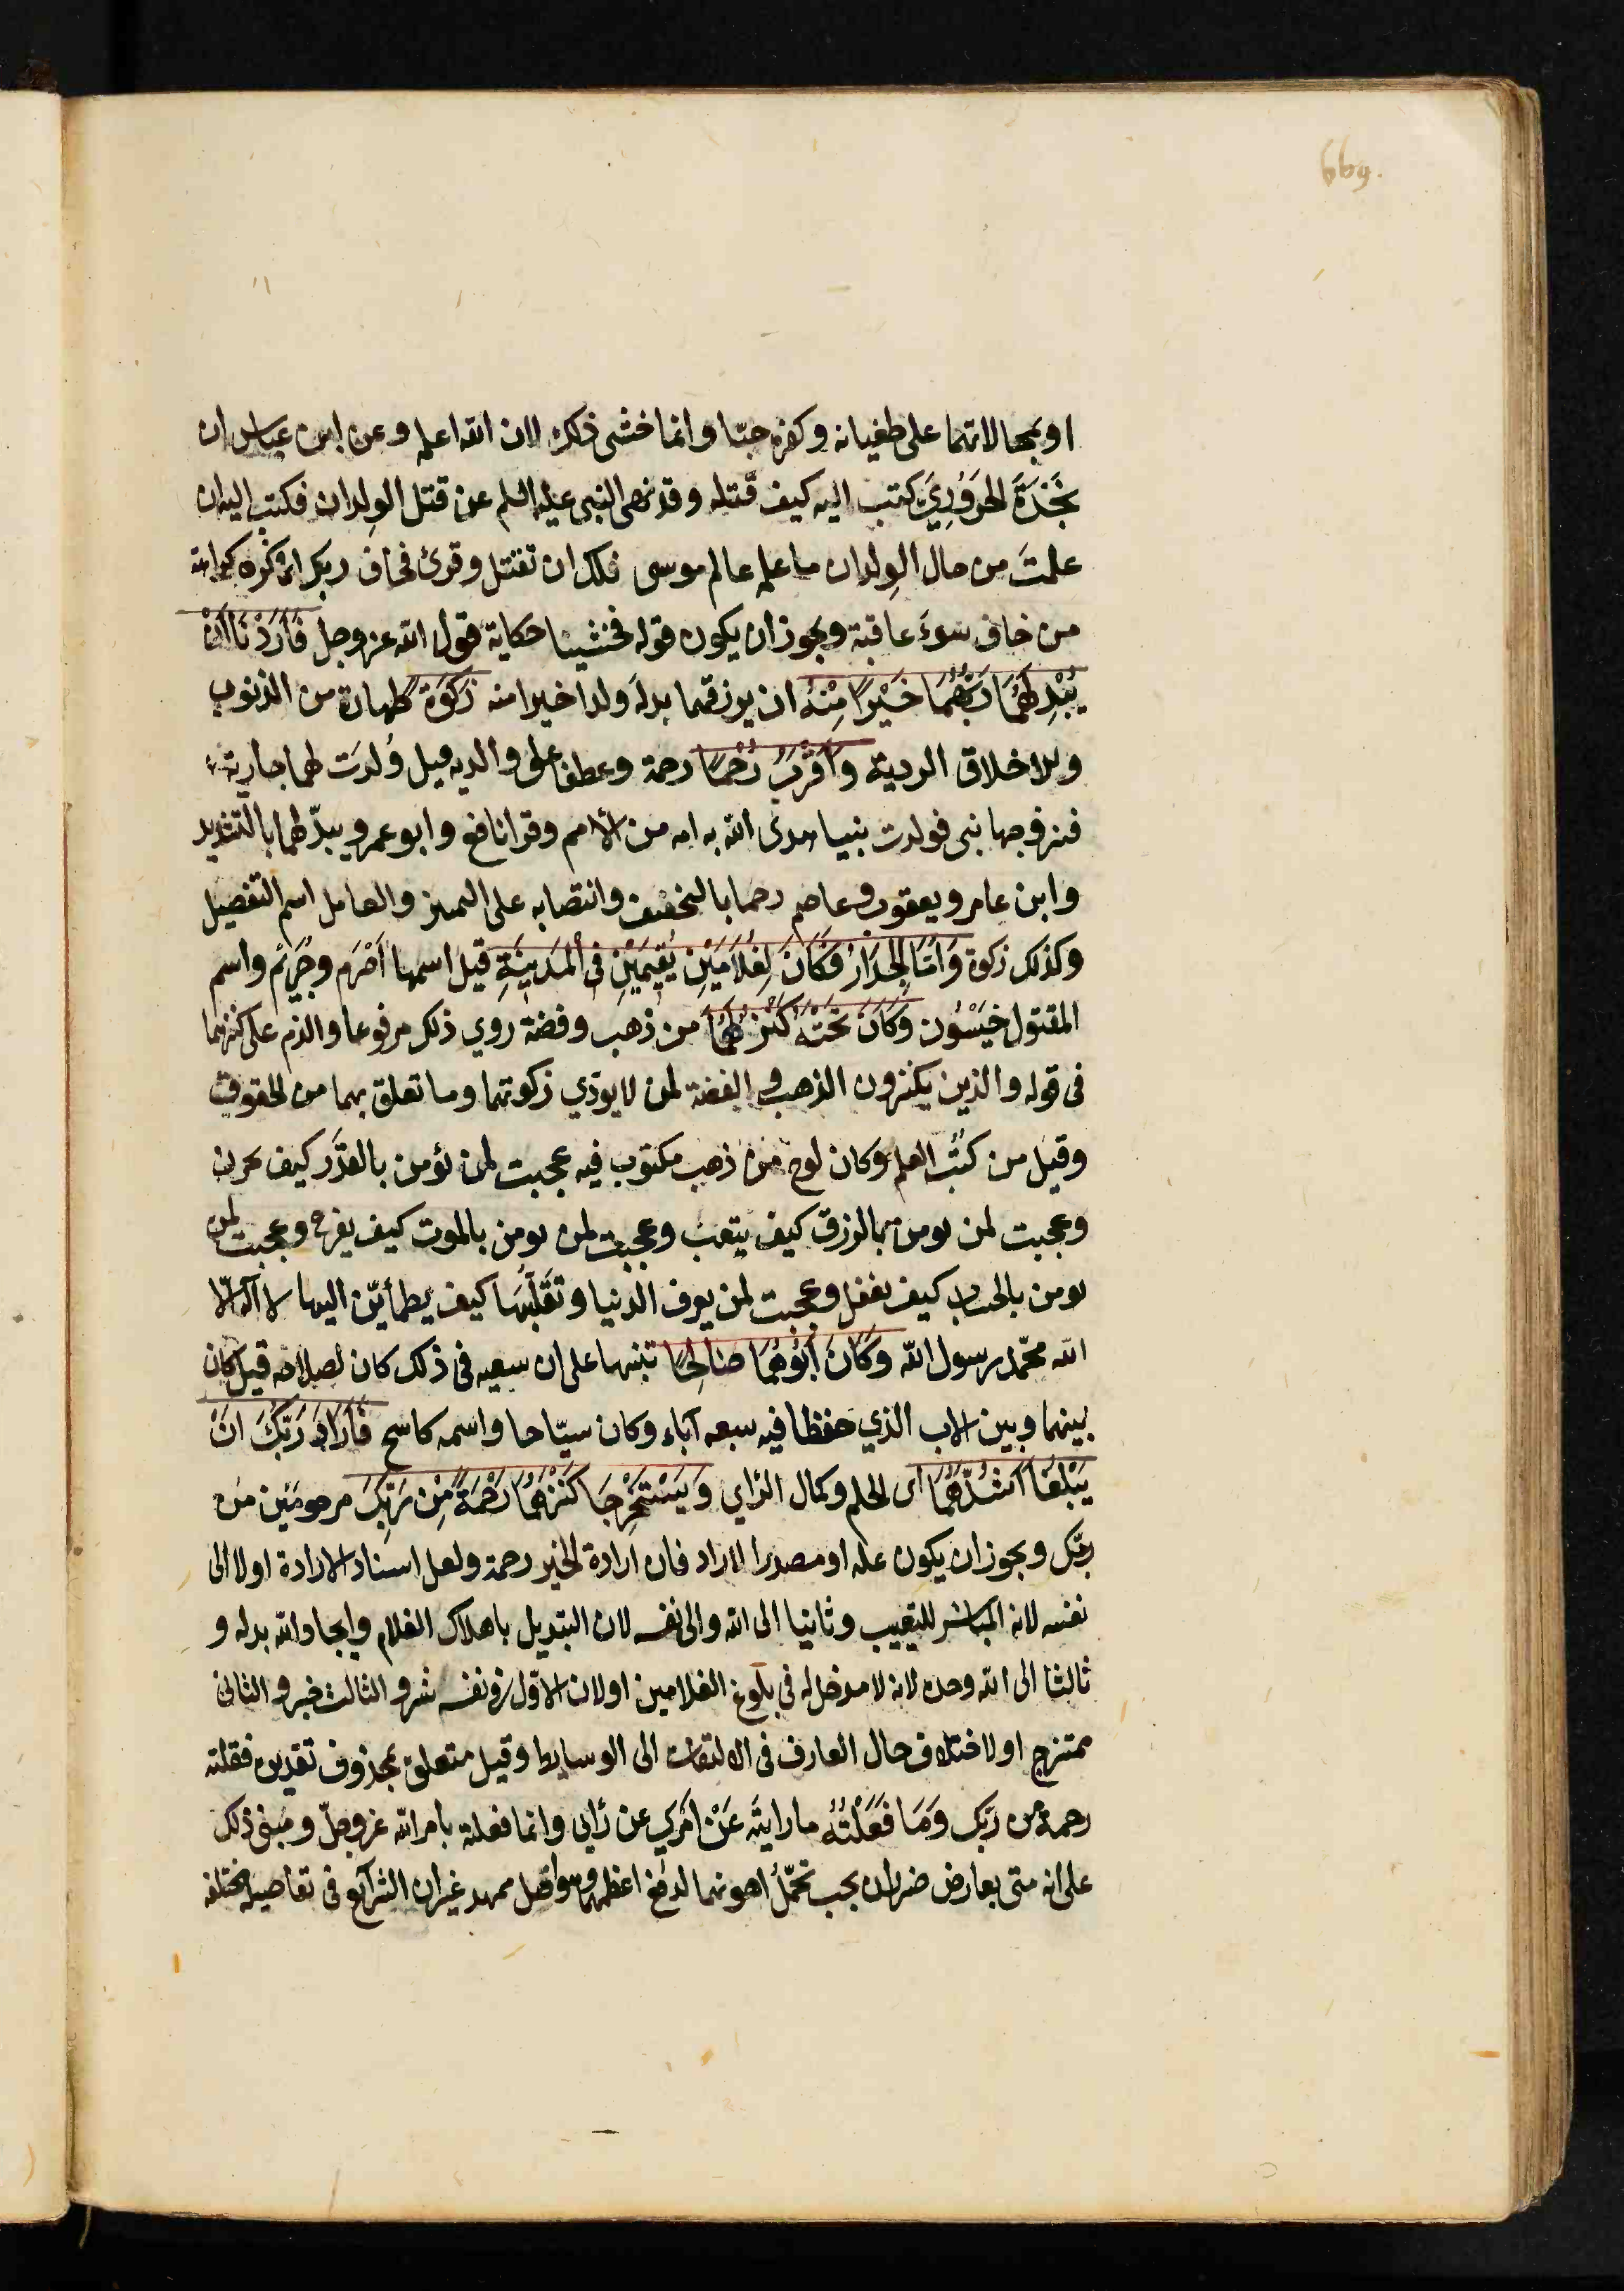 669.
او بممالاتهما على طغيانه وكفره حبّا وانما خشى ذلك لان الله اعلمه وعن ابن عباس ان
نَجْدَةَ الحَرَوُرِيَّ كتب اليه كيف قتله وقد نهى النبي عليه السلم عن قتل الوِلدان فكتب اليه ان
علمتَ من حال الوِلدان ما علمه عالم موسى فلك ان تقتل وقرئ فخاف ربك اى فكره كراهة
من خاف سوءَ عاقبة ويجوز ان يكون قوله فخشينا حكاية قول الله عز وجل فَأَرَدْنَا أَنْ
يُبْدِلَهُمَا رَبُّهُمَا خَيْرًا مِنْهُ ان يرزقهما بدله ولدا خيرا منه زَكَوةً طهارة من الذنوب
والاخلاق الردية وَأَقْرَبَ رُحْمًا رحمة وعطفا على والديه قيل وُلدَت لهما جارية
فتزوجها نبى فولدت نبيا هدى الله به امه من الامم وقرا نافع وابو عمرو يبدّلهما بالتشديد
وابن عامر ويعقوب وعاصم رحما بالتخفيف وانتصابه على التمييز والعامل اسم التفصيل
وكذلك زكوة وَاَمَّا الْجِدَارُ فَكَانَ لِغُلَامَيْنِ يَتِيمَيْنِ فِى الْمَدِينَةِ قيل اسمهما اَصْرَم وصُرَيْم واسم
المقتول خَيْسُون وَكَانَ تَحْتَهُ كَنْزٌ لَهُمَا من ذهب وفضة روي ذلك مرفوعا والذم على كنزهما
فى قوله والذين يكنزون الذهب والفضة لمن لا يودّي زكوتهما وما تعلق بهما من الحقوق
وقيل من كتُب العلم وكان لوح من ذهب مكتوب فيه عجبت لمن يؤمن بالقدَر كيف يحزن
وعجبت لمن يومن بالرزق كيف يتعب وعجبت لمن يومن بالموت كيف يفرح وعجبت لمن
يومن بالحساب كيف يغفل وعجبت لمن يعرف الدنيا وتَقَلُّبَهَا كيف يطمأنّ اليها لا اله الا
الله محمّد رسول الله وَكَانَ أَبُوهُمَا صَالِحًا تنبيها على ان سعيه فى ذلك كان لصلاحه قيل كان
بينهما وبين الاب الذي حفظا فيه سبعه آباء وكان سيّاحا واسمه كاسح فَأَرَادَ رَبُّكَ اَنْ
يَبْلُغَا أَشُدَّهُمَا اى الحلم وكمال الراي وَيَسْتَخْرِجَا كَنْزَهُمَا رَحْمَةً مِنْ رَبِّكَ مرحومَين من
ربّك ويجوز ان يكون علة او مصدرا لاراد فان ارادة الخير رحمة ولعل اسناد الارادة اولا الى
نفسه لانه المباشر للتعييب وثانيا الى الله والى نفسه لان التبديل باهلاك الغلام وايجاد الله بدله و
ثالثا الى الله وحده لانه لا مدخل له فى بلوغ الغلامين او لان الاوّل فى نفسه شر والثالث خير والثانى
ممتزج او لاختلاف حال العارف فى الالتفات الى الوسايط وقيل متعلق بمحذوف تقديره فعلته
رحمة من ربّك وَمَا فَعَلْتُهُ ما رايته عَنْ اَمْرِي عن رَايى وانما فعلته بامر الله عز وجلّ ومَبنى ذلك
على انه متى تعارض ضرران يجب تحمّلُ اهونهما لدفع اعظمهما وهو اصل ممهد غير ان الشرائع فى تفاصيله مختلفه